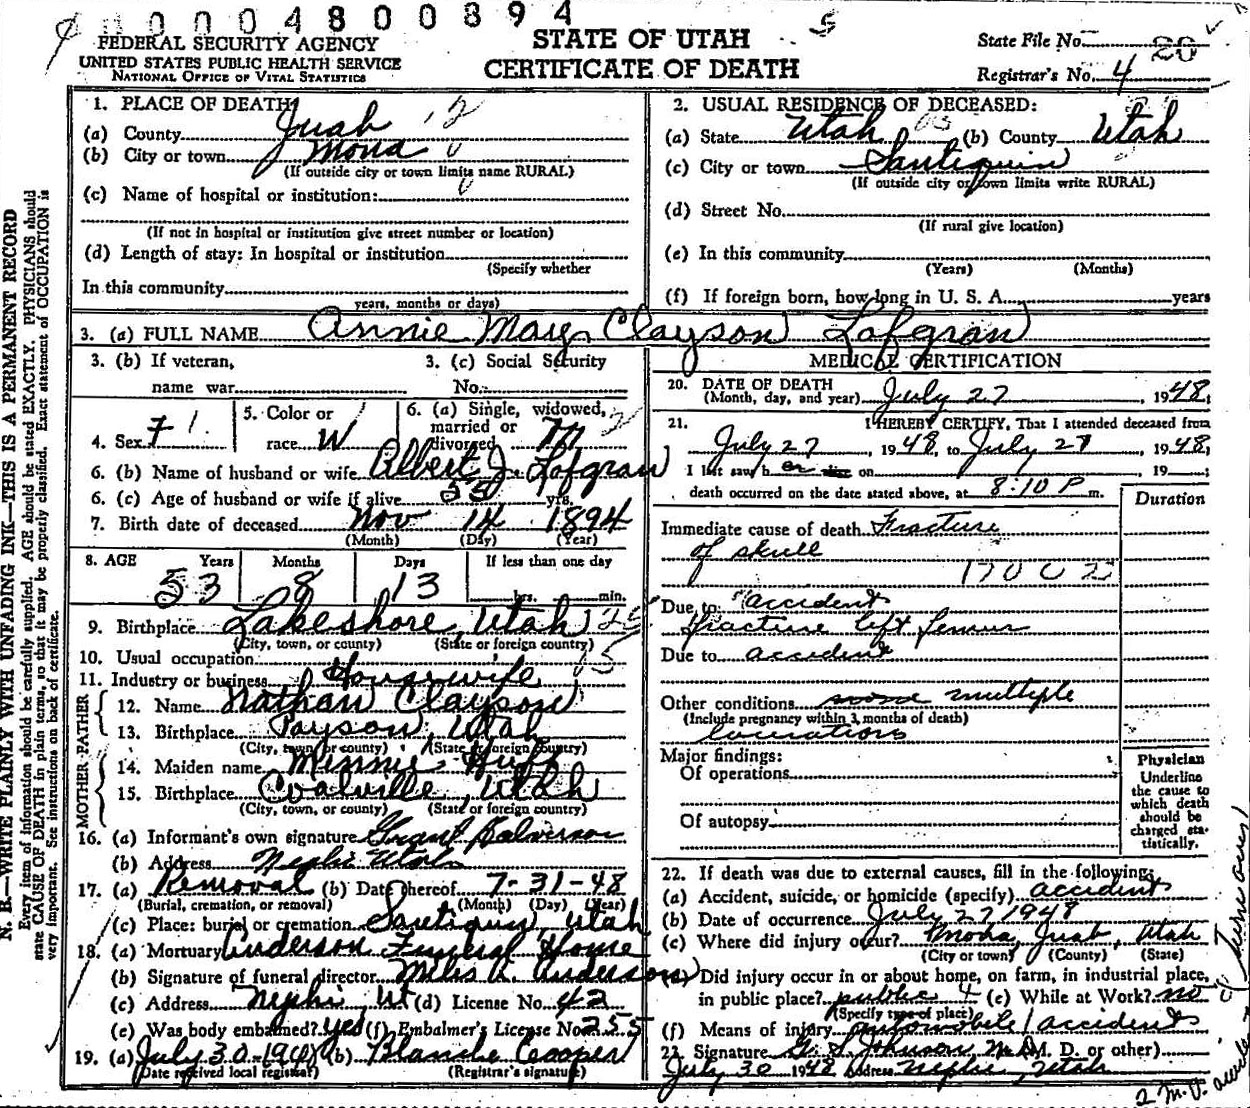 0004800894
FEDERAL SECURITY AGENCY
UNITED STATES PUBLIC HEALTH SERVICE
NATIONAL OFFICE OF VITAL STATISTICS
STATE OF UTAH
CERTIFICATE OF DEATH
5
State File No. 20
Registrar's No. 4
N. B.—WRITE PLAINLY WITH UNFADING INK—THIS IS A PERMANENT RECORD
Every item of information should be carefully supplied. AGE should be stated EXACTLY. PHYSICIANS should
state CAUSE OF DEATH in plain terms, so that it may be properly classified. Exact statement of OCCUPATION is
very important. See instructions on back of certificate.
1. PLACE OF DEATH
(a) County Juab
(b) City or town Mona
(If outside city or town limits name RURAL)
(c) Name of hospital or institution:
(If not in hospital or institution give street number or location)
(d) Length of stay: In hospital or institution
(Specify whether
In this community
years, months or days)
2. USUAL RESIDENCE OF DECEASED:
(a) State Utah (b) County Utah
(c) City or town Santaquin
(If outside city or town limits write RURAL)
(d) Street No.
(If rural give location)
(e) In this community
(Years) (Months)
(f) If foreign born, how long in U. S. A. years
3. (a) FULL NAME Annie May Clayson Lofgran
3. (b) If veteran, 3. (c) Social Security
name war No.
4. Sex F 1. 5. Color or race W 6. (a) Single, widowed, married or divorced M
6. (b) Name of husband or wife Albert J. Lofgran
6. (c) Age of husband or wife if alive 55 yrs.
7. Birth date of deceased Nov 14 1894
(Month) (Day) (Year)
8. AGE Years Months Days If less than one day
53 8 13 hrs. min.
9. Birthplace Lakeshore Utah
(City, town, or county) (State or foreign country)
10. Usual occupation
11. Industry or business Housewife
FATHER
12. Name Nathan Clayson
13. Birthplace Payson, Utah
(City, town or county) (State or foreign country)
MOTHER
14. Maiden name Minnie Huff
15. Birthplace Coalville, Utah
(City, town, or county) (State or foreign country)
16. (a) Informant's own signature Grant
(b) Address Nephi Utah
17. (a) Removal (b) Date thereof 7-31-48
(Burial, cremation, or removal) (Month) (Day) (Year)
(c) Place: burial or cremation Santaquin, Utah
18. (a) Mortuary Anderson Funeral Home
(b) Signature of funeral director Miles A. Anderson
(c) Address Nephi Ut (d) License No. 42
(e) Was body embalmed? yes (f) Embalmer's License No. 255
19. (a) July 30-1948 (b) Blanche Cooper
(Date received local registrar) (Registrar's signature)
MEDICAL CERTIFICATION
20. DATE OF DEATH
(Month, day, and year) July 27, 1948,
21. I HEREBY CERTIFY, That I attended deceased from
July 27, 1948, to July 27, 1948,
I last saw h er alive on , 19 ;
death occurred on the date stated above, at 8:10 P m.
Duration
Immediate cause of death Fracture
of skull
Due to accident
fracture left femur
Due to accident
Other conditions multiple
(Include pregnancy within 3 months of death)
lacerations
Major findings:
Of operations
Of autopsy
Physician
Underline
the cause to
which death
should be
charged sta-
tistically.
22. If death was due to external causes, fill in the following:
(a) Accident, suicide, or homicide (specify) accident
(b) Date of occurrence July 27 1948
(c) Where did injury occur? Mona, Juab, Utah
(City or town) (County) (State)
(d) Did injury occur in or about home, on farm, in industrial place,
in public place? public 4 (e) While at Work? no
(Specify type of place)
(f) Means of injury automobile accident
23. Signature G. S. Johnson, M.D. (M. D. or other)
July 30 1948 Address Nephi, Utah
2 M.V.